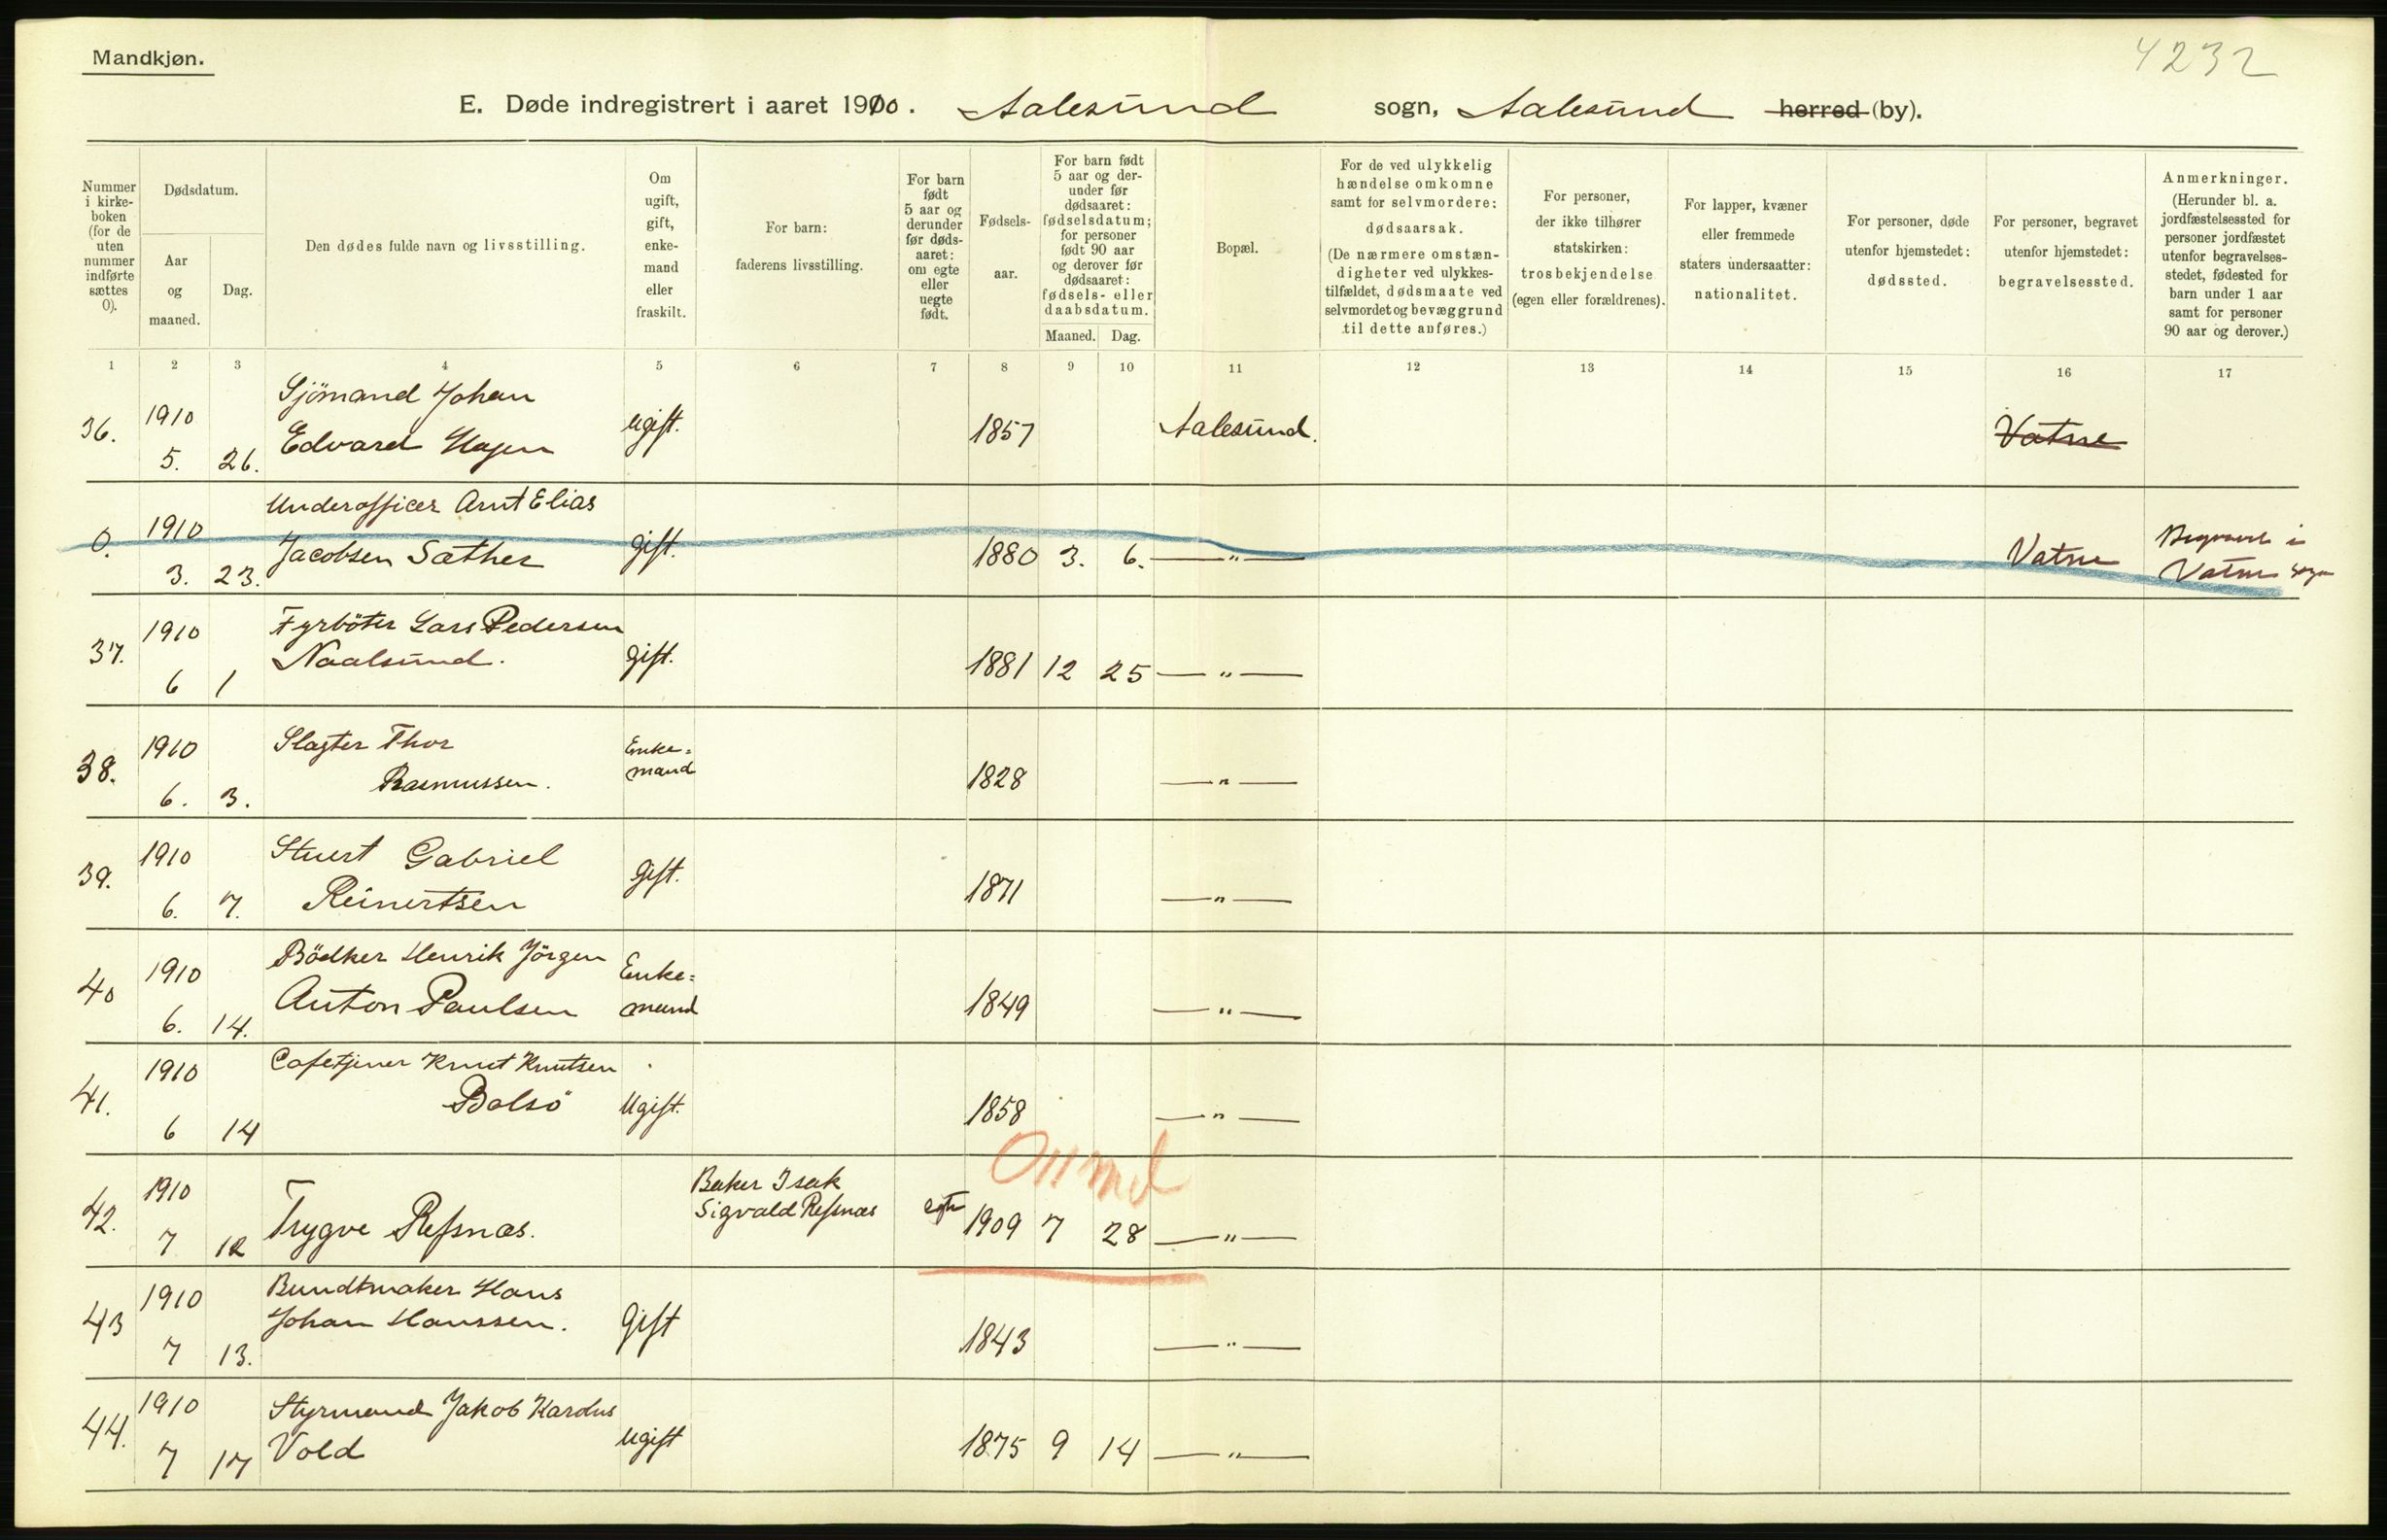 Mandkjøn.
4232
E. Døde indregistrert i aaret 1910. Aalesund sogn, Aalesund herred (by).
Nummer i kirke-boken (for de uten nummer indførte sættes 0).
Dødsdatum.
Aar og maaned.
Dag.
Den dødes fulde navn og livsstilling.
Om ugift, gift, enke-mand eller fraskilt.
For barn: faderens livsstilling.
For barn født 5 aar og derunder før døds-aaret: om egte eller uegte født.
Fødsels-aar.
For barn født 5 aar og der-under før dødsaaret: fødselsdatum; for personer født 90 aar og derover før dødsaaret: fødsels- eller daabsdatum.
Maaned. Dag.
Bopæl.
For de ved ulykkelig hændelse omkomne samt for selvmordere: dødsaarsak. (De nærmere omstæn-digheter ved ulykkes-tilfældet, dødsmaate ved selvmordet og bevæggrund til dette anføres.)
For personer, der ikke tilhører statskirken: trosbekjendelse (egen eller forældrenes).
For lapper, kvæner eller fremmede staters undersaatter: nationalitet.
For personer, døde utenfor hjemstedet: dødssted.
For personer, begravet utenfor hjemstedet: begravelsessted.
Anmerkninger. (Herunder bl. a. jordfæstelsessted for personer jordfæstet utenfor begravelses-stedet, fødested for barn under 1 aar samt for personer 90 aar og derover.)
1 2 3 4 5 6 7 8 9 10 11 12 13 14 15 16 17
Sjömand Johan
36. 1910 5. 26. Edvard Hagen ugift. 1857 Aalesund. Vatne
Underofficer Arnt Elias
0. 1910 3. 23. Jacobsen Sæther gift. 1880 3. 6. —"— Vatne Begravet i
Vatne sogn
Fyrböter Lars Pedersen
37. 1910 6 1 Naalsund. gift. 1881 12 25 —"—
Slagter Thor
38. 1910 6. 3. Rasmussen. Enke=
mand 1828 —"—
Stuert Gabriel
39. 1910 6. 7. Reinertsen gift. 1871 —"—
Bödker Henrik Jörgen
40 1910 6. 14. Anton Paulsen Enke=
mand 1849 —"—
Cafetjener Knut Knutsen
41. 1910 6 14 Bolsö Ugift. 1858 —"—
011 md
Baker Isak
Sigvald Refsnæs
42. 1910 7 12 Trygve Refsnæs. egte 1909 7 28 —"—
Bundtmaker Hans
43 1910 7 13. Johan Hanssen. Gift 1843 —"—
Styrmand Jakob Kardus
44. 1910 7 17 Vold ugift 1875 9 14 —"—